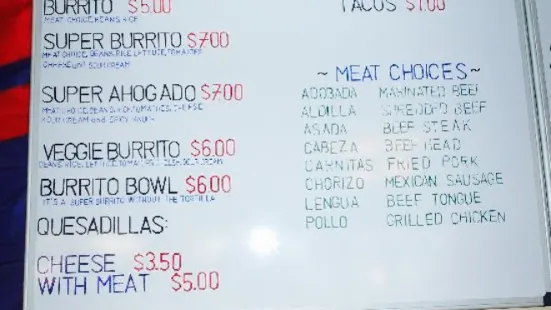 BURRITO $5.00
MEAT CHOICE, BEANS, RICE
SUPER BURRITO $7.00
MEAT CHOICE, BEANS, RICE, LETTUCE, TOMATOES
CHEESE and SOUR CREAM
SUPER AHOGADO $7.00
MEAT CHOICE, BEANS, RICE, TOMATOES, CHEESE
SOUR CREAM and SPICY
VEGGIE BURRITO $6.00
BEANS, RICE, LETTUCE, TOMATOES, CHEESE, SOUR CREAM
BURRITO BOWL $6.00
IT'S A SUPER BURRITO WITHOUT THE TORTILLA
QUESADILLAS:
CHEESE $3.50
WITH MEAT $5.00
TACOS $1.00
~ MEAT CHOICES ~
ADOBADA MARINATED BEEF
ALDILLA SHREDDED BEEF
ASADA BEEF STEAK
CABEZA BEEF HEAD
CARNITAS FRIED PORK
CHORIZO MEXICAN SAUSAGE
LENGUA BEEF TONGUE
POLLO GRILLED CHICKEN